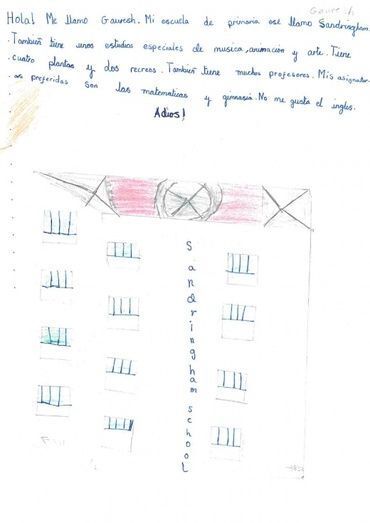 Gaures.h
Hola! Me llamo Gauresh. Mi escuela de primaria ose llamo Sandringham
. También tiene unos estudios especiales de musica, animación y arte. Tiene
cuatro plantas y dos recreos. También tiene muchos profesores. Mis asignatur-
as preferidas son las matematicas y gimnasia. No me gusta el ingles.
Adios!
Sandringham school